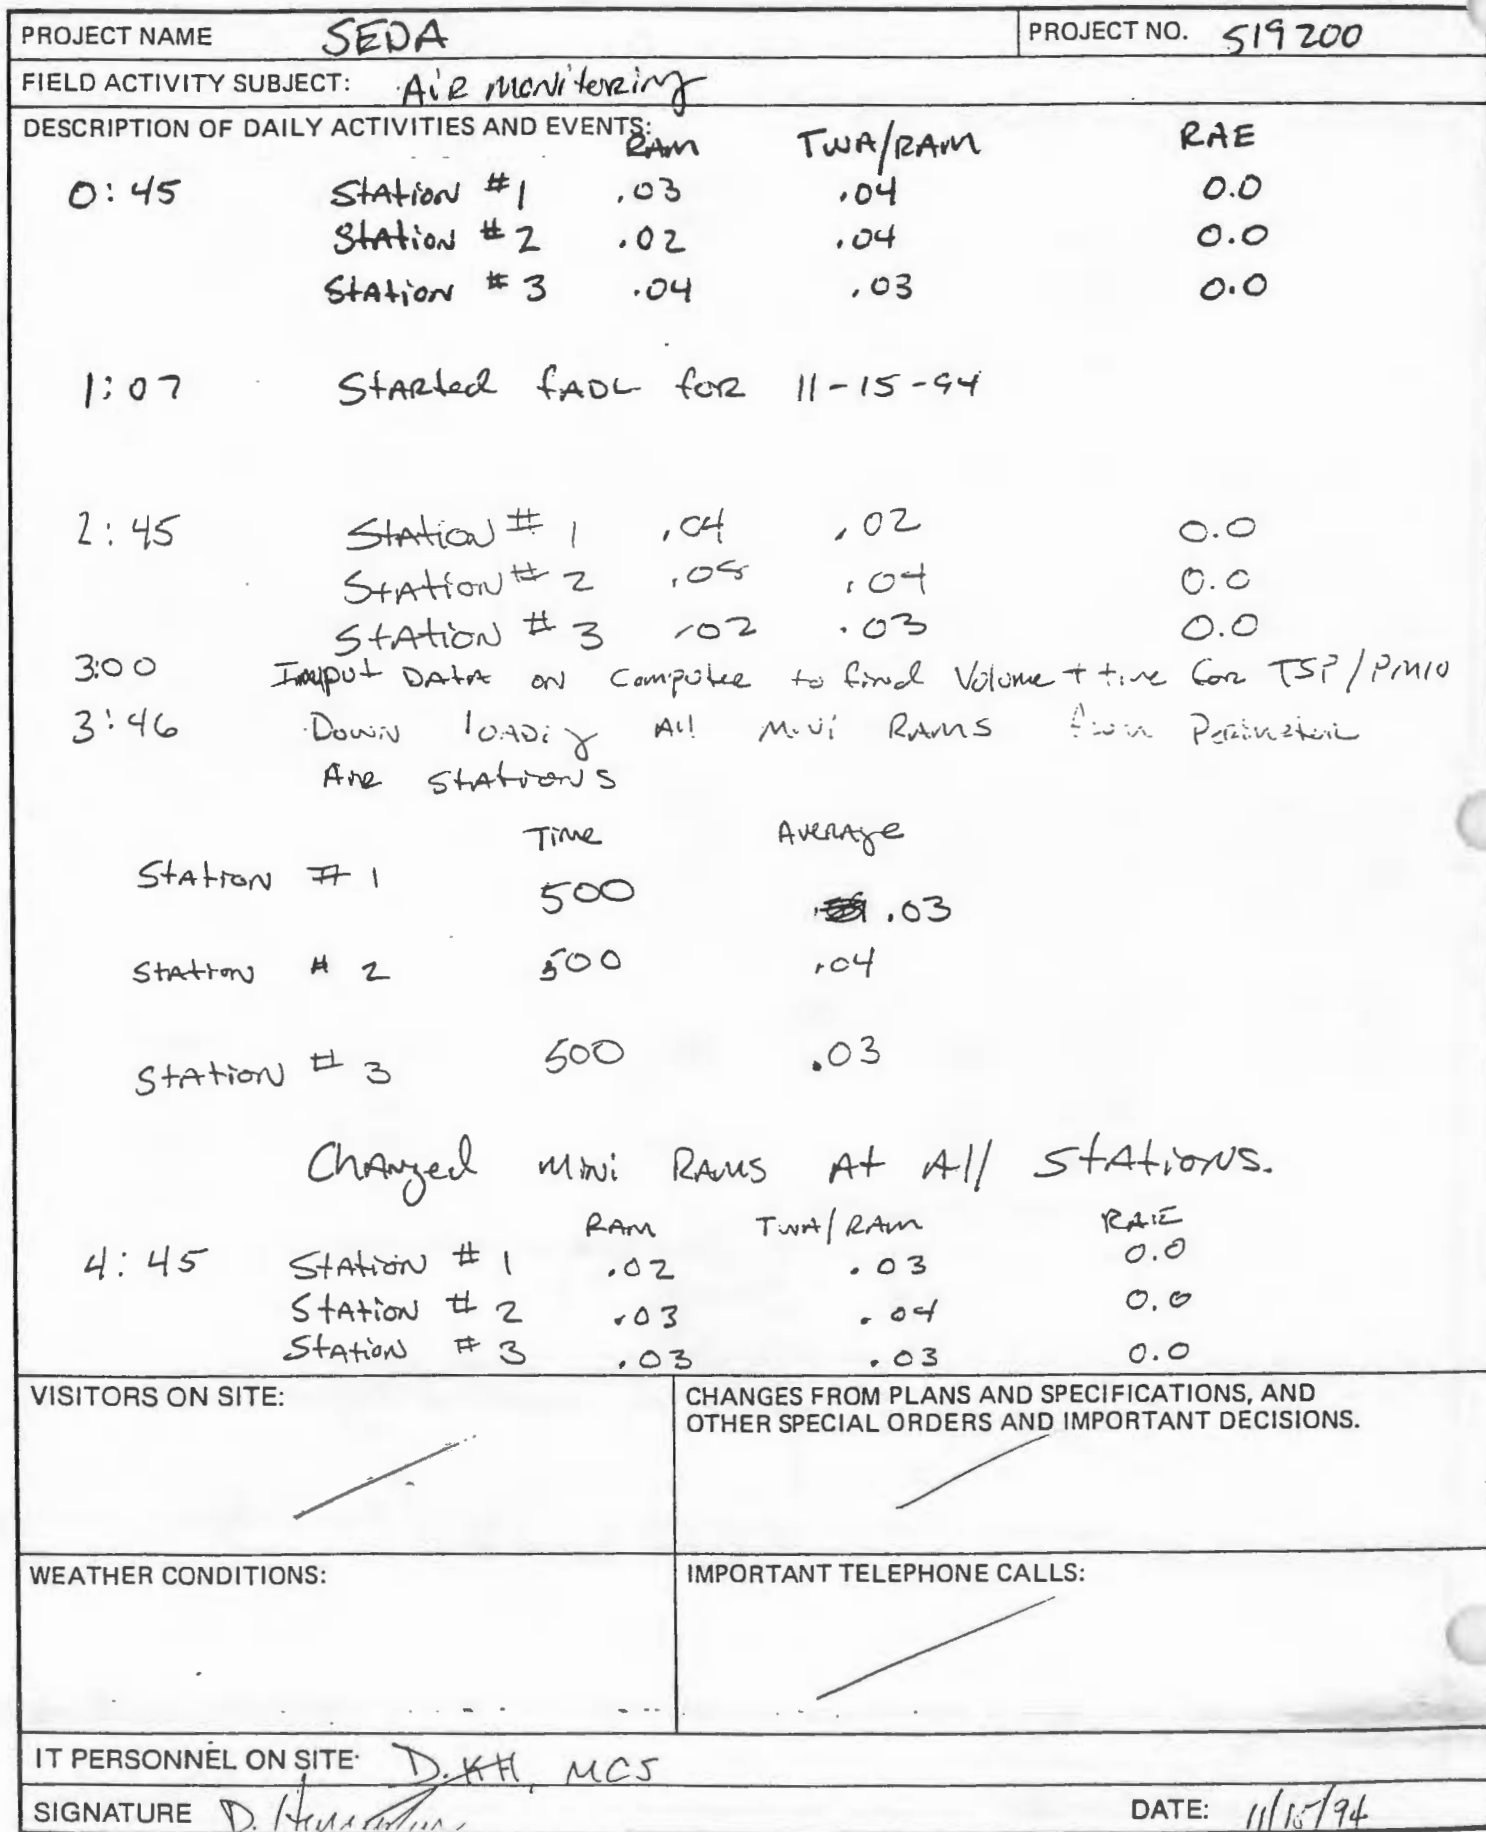 PROJECT NAME SEDA PROJECT NO. 519200
FIELD ACTIVITY SUBJECT: AiR Monitoring
DESCRIPTION OF DAILY ACTIVITIES AND EVENTS:
RAM TWA/RAM RAE
0:45 Station #1 .03 .04 0.0
Station #2 .02 .04 0.0
Station #3 .04 .03 0.0
1:07 Started FADL for 11-15-94
2:45 Station #1 .04 .02 0.0
Station #2 .04 0.0
Station #3 .02 .03 0.0
3:00 Data on Computer to find Volume + time for TSP/PM10
3:46 Down loading All Mini RAMS from Perimeter
Stations
Time Average
Station #1 500 .03
Station #2 500 .04
Station #3 500 .03
Changed Mini RAMS At All Stations.
RAM TWA/RAM RAE
4:45 Station #1 .02 .03 0.0
Station #2 .03 .04 0.0
Station #3 .03 .03 0.0
VISITORS ON SITE:
CHANGES FROM PLANS AND SPECIFICATIONS, AND
OTHER SPECIAL ORDERS AND IMPORTANT DECISIONS.
WEATHER CONDITIONS:
IMPORTANT TELEPHONE CALLS:
IT PERSONNEL ON SITE: D.KH, MCS
SIGNATURE D. DATE: 11/15/94